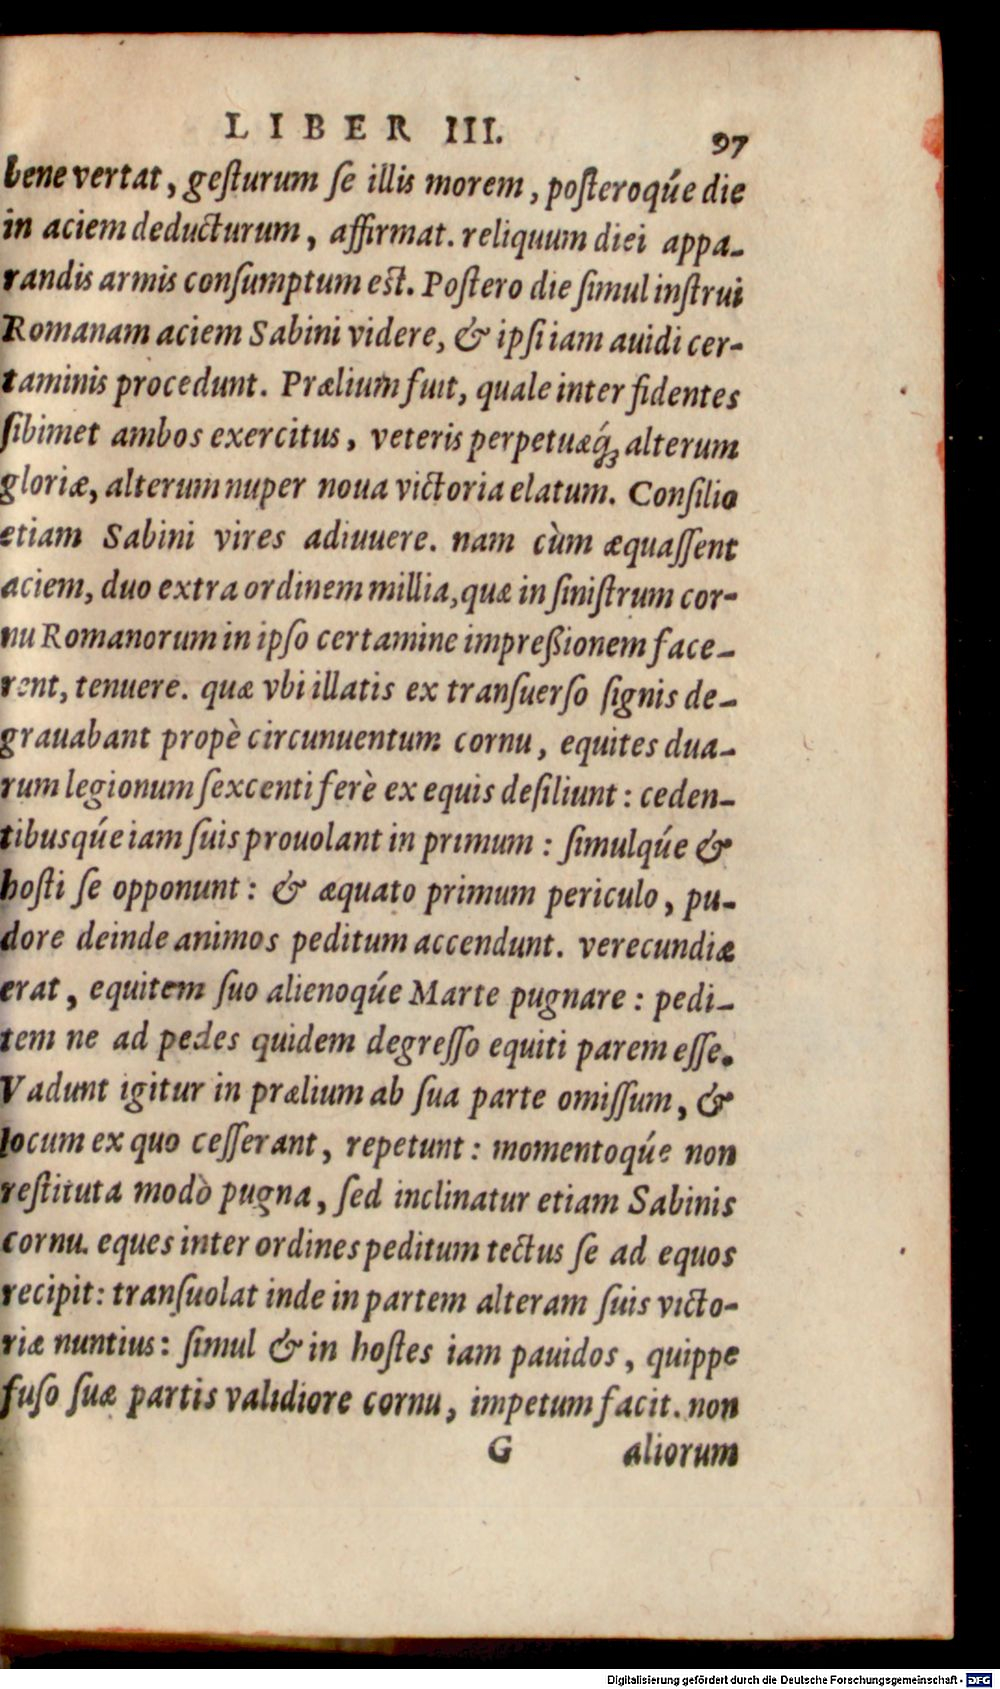 LIBER III. 97
bene vertat, geſturum ſe illis morem, poſteroqúe die
in aciem deducturum, affirmat. reliquum diei appa-
randis armis conſumptum est. Poſtero die ſimul inſtrui
Romanam aciem Sabini videre, & ipſi iam auidi cer-
taminis procedunt. Prælium fuit, quale inter fidentes
ſibimet ambos exercitus, veteris perpetuæq́ꝫ alterum
gloriæ, alterum nuper noua victoria elatum. Conſilio
etiam Sabini vires adiuuere. nam cùm æquaſſent
aciem, duo extra ordinem millia, quæ in ſiniſtrum cor-
nu Romanorum in ipſo certamine impreßionem face-
rent, tenuere. quæ vbi illatis ex tranſuerſo ſignis de-
grauabant propè circunuentum cornu, equites dua-
rum legionum ſexcenti ferè ex equis deſiliunt: ceden-
tibusqúe iam ſuis prouolant in primum: ſimulqúe &
hoſti ſe opponunt: & æquato primum periculo, pu-
dore deinde animos peditum accendunt. verecundiæ
erat, equitem ſuo alienoqúe Marte pugnare: pedi-
tem ne ad pedes quidem degreſſo equiti parem eſſe.
Vadunt igitur in prælium ab ſua parte omiſſum, &
locum ex quo ceſſerant, repetunt: momentoqúe non
reſtituta modò pugna, ſed inclinatur etiam Sabinis
cornu. eques inter ordines peditum tectus ſe ad equos
recipit: tranſuolat inde in partem alteram ſuis victo-
riæ nuntius: ſimul & in hoſtes iam pauidos, quippe
fuſo ſuæ partis validiore cornu, impetum facit. non
G aliorum
Digitalisierung gefördert durch die Deutsche Forschungsgemeinschaft - DFG